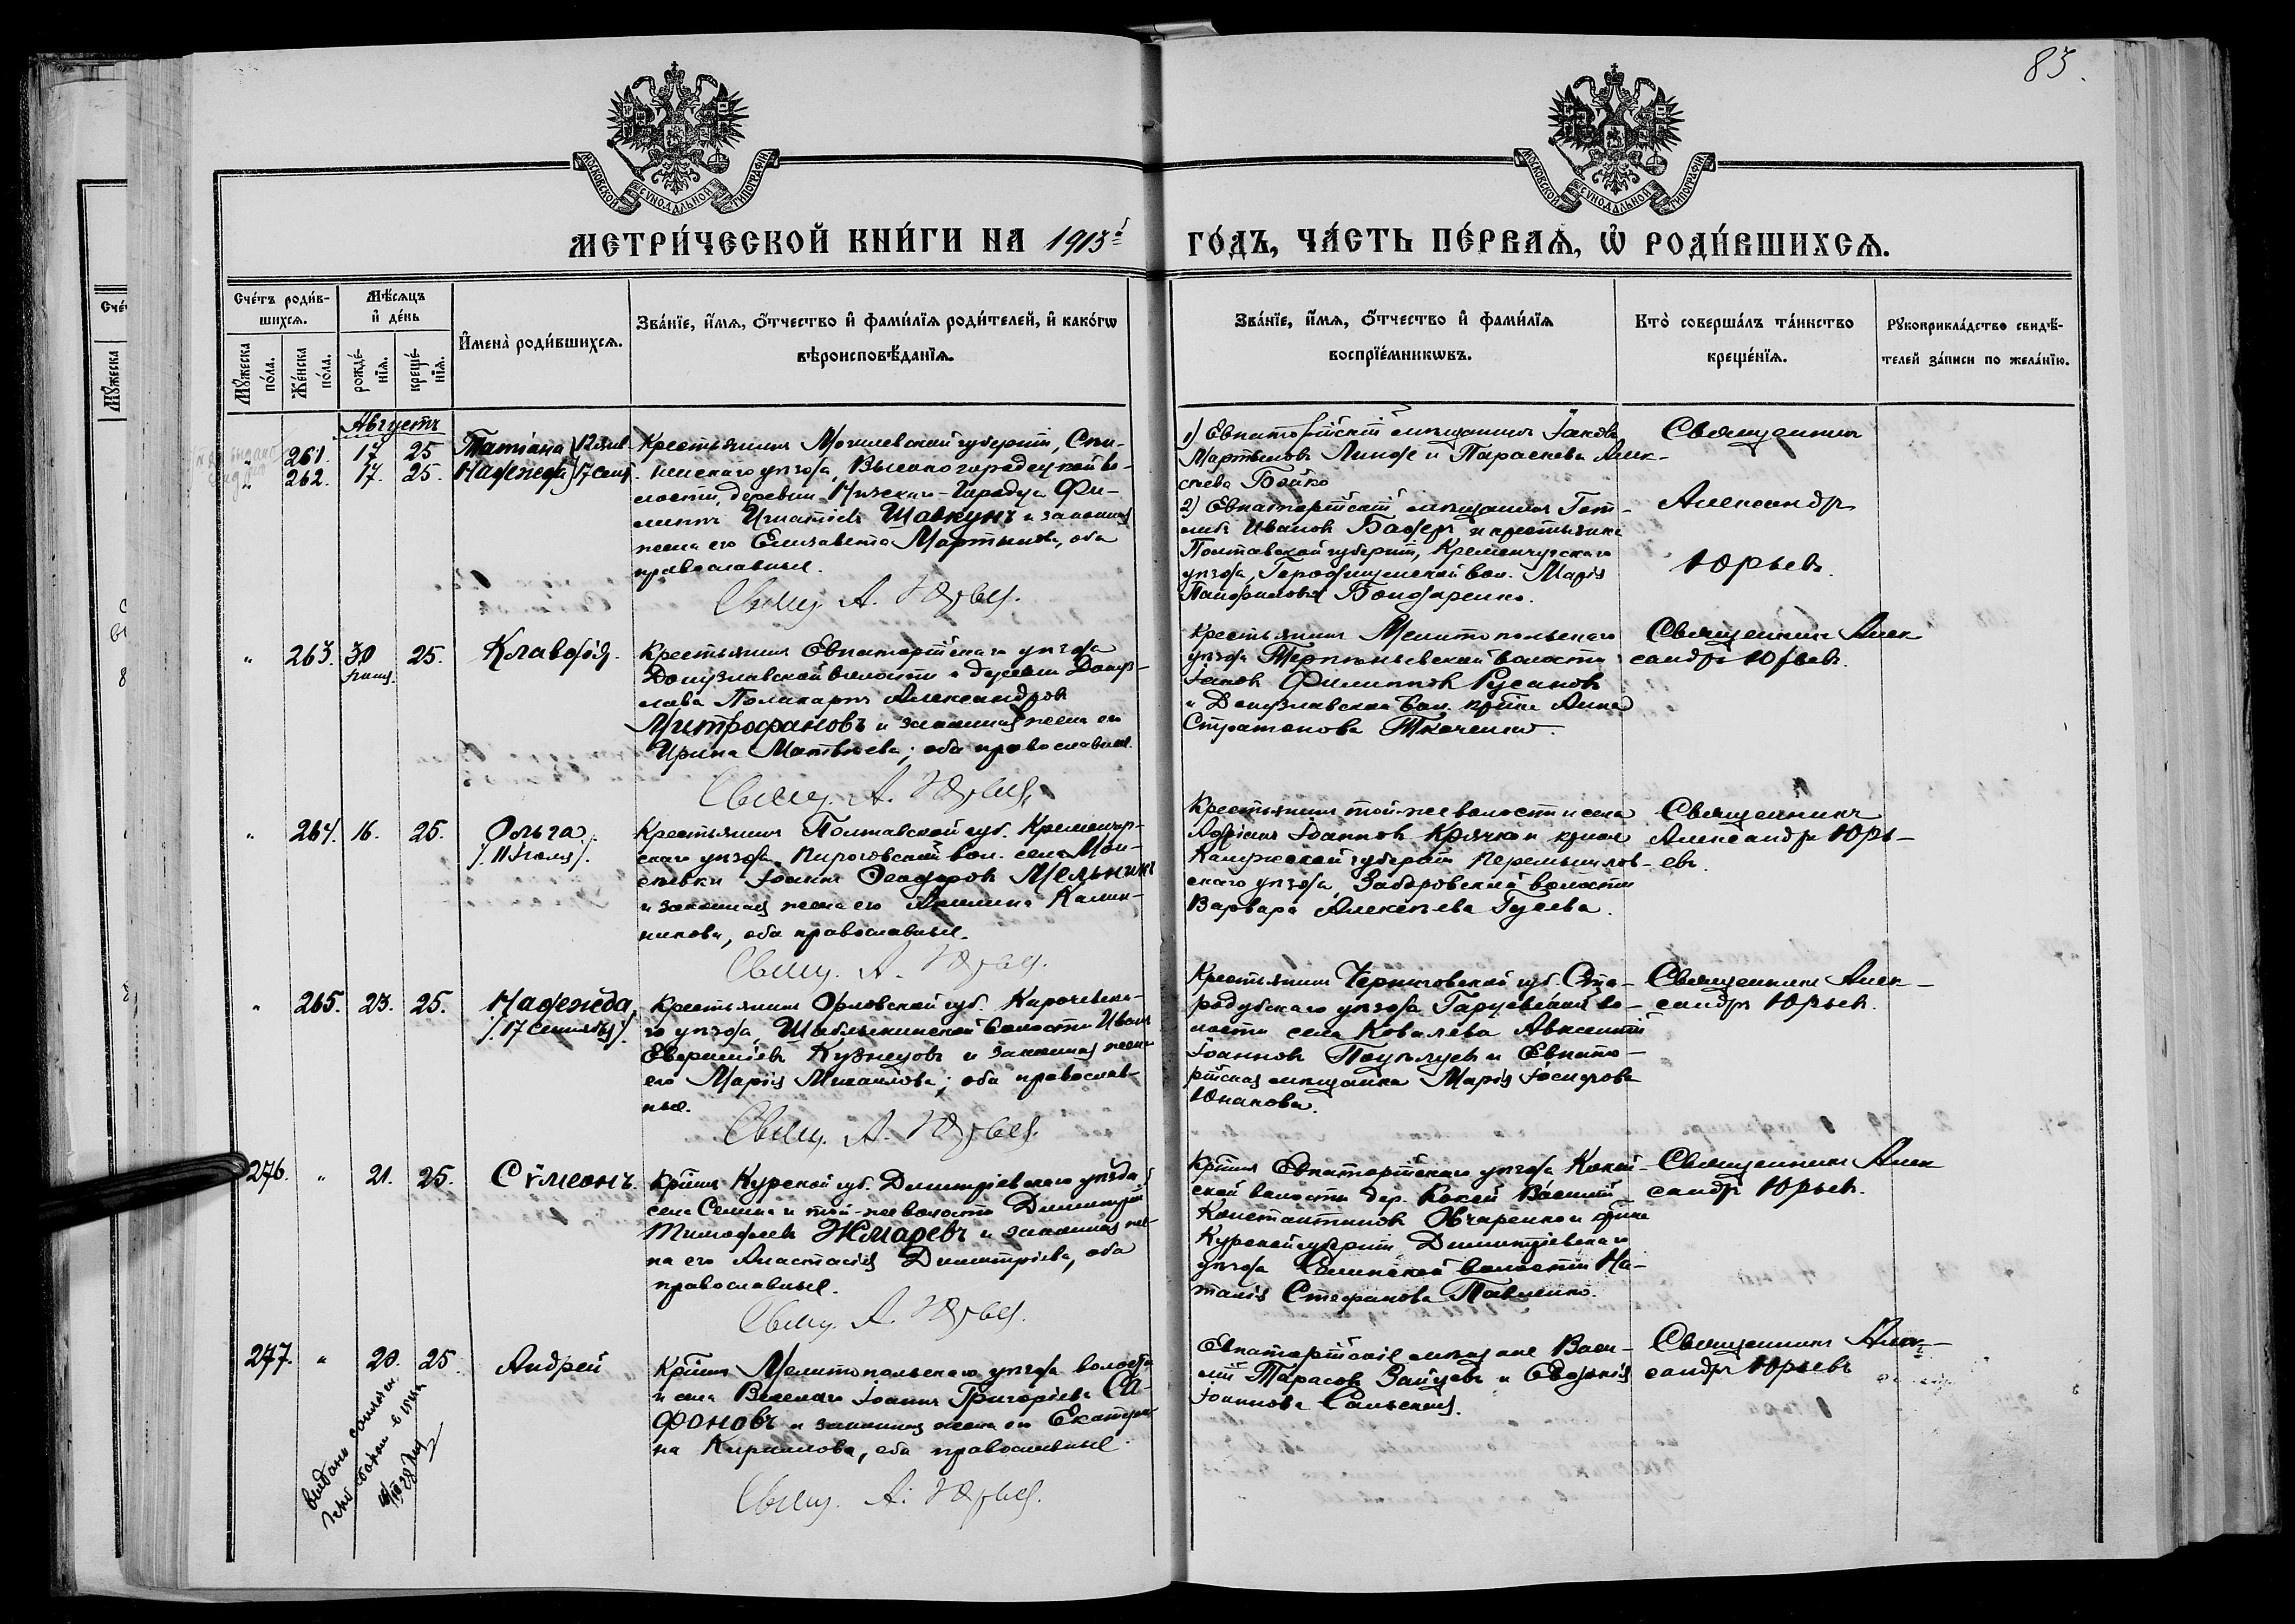 83.
МОСКОВСКОЙ СѴНОДАЛЬНОЙ ТИПОГРАФІИ
МОСКОВСКОЙ СѴНОДАЛЬНОЙ ТИПОГРАФІИ
МЕТРИ́ЧЕСКОЙ КНИ́ГИ НА 1913й ГО́ДЪ, ЧА́СТЬ ПЕ́РВАЯ, Ѡ҆ РОДИ́ВШИХСЯ.
Сче́тъ роди́в-
шихся.
Мѣ́сяцъ
и҆ де́нь
Мꙋ́жеска
по́ла.
Же́нска
по́ла.
рожде́-
нїя.
креще́-
нїя.
И҆мена̀ роди́вшихся.
Зва́нїе, и҆́мя, ѻ҆́тчество и҆ фами́лїя роди́телей, и҆ како́гѡ
вѣроисповѣ́данїя.
Зва́нїе, и҆́мя, ѻ҆́тчество и҆ фами́лїя
воспрїе́мникѡвъ.
Кто̀ соверша́лъ та́инство
креще́нїя.
Рꙋкоприкла́дство свидѣ́-
телей за́писи по жела́нїю.
Августъ
" 261. 17 25 Татіана 12 янв.
" 262. 17. 25. Надежда 17 сент.
Крестьянинъ Могилевской губерніи, Сѣн-
ненскаго уѣзда, Высокогородецкой во-
лости, деревни Филиппъ
Игнатіевъ Шавкунъ и законная
жена его Елизавета Мартинова, оба
православные.
Свящ. А. Юрьев.
1) Евпаторійскій мѣщанинъ Іаковъ
Мартиновъ и Параскева Алек-
сѣева Бойко
2) Евпаторійскій мѣщанинъ Гот-
либъ Ивановъ Бадеръ и крестьянка
Полтавской губерніи, Кременчугскаго
уѣзда, вол. Марія
Панфилова Бондаренко.
Священникъ
Александръ
Юрьевъ.
" 263. 30 іюля. 25. Клавдія.
Крестьянинъ Евпаторійскаго уѣзда
Донузлавской волости и деревни Донуз-
лава Поликарпъ Александровъ
Митрофановъ и законная жена его
Ирина Матвѣева; оба православные.
Свящ. А. Юрьев.
Крестьянинъ Мелитопольскаго
уѣзда Терпѣньевской волости
Іаковъ Филипповъ Русановъ
и Донузлавской вол. кр-нка Анна
Стратонова Ткаченко.
Священникъ Алек
сандръ Юрьевъ.
" 264. 16. 25. Ольга.
/11 Іюля/.
Крестьянинъ Полтавской губ. Кременчуг-
скаго уѣзда, Пироговской вол. села Мои-
сеевки Іоаннъ Ѳеодоровъ Мельникъ
и законная жена его Акилина Калин-
никова, оба православные.
Свящ. А. Юрьев.
Крестьянинъ той-же волости и села
Іоанновъ Крячко и
Калужской губерніи Перемышлов-
скаго уѣзда, Заборовской волости
Варвара Алексѣева Гусева.
Священникъ
Александръ Юрь-
евъ.
" 265. 23. 25. Надежда,
/17 Сентября/.
Крестьянинъ Орловской губ. Карачевска-
го уѣзда, Шаблыкинской волости Иванъ
Кузнецовъ и законная жена
его Марія Михаилова; оба православ-
ные.
Свящ. А. Юрьев.
Крестьянинъ Черниговской губ. Ста-
родубскаго уѣзда Гарцевской во-
лости села Ковалева Авксентій
Іоанновъ и Евпато-
рійская мѣщанка Марія Іосифова
Юнакова.
Священникъ Алек-
сандръ Юрьевъ.
276. " 21. 25. Сѵмеонъ.
Кр-нинъ Курской губ. Димитріевскаго уѣзда,
села Селина и той-же волости Димитрій
Тимофеевъ Жмаревъ и законная же-
на его Анастасія Димитріева, оба
православные.
Свящ. А. Юрьев.
Кр-нинъ Евпаторійскаго уѣзда Кокей-
ской волости дер. Кокей Василій
Константиновъ Овчаренко и кр-нка
Курской губерніи Димитріевскаго
уѣзда Селинской волости На-
талія Стефанова Павленко.
Священникъ Алек
сандръ Юрьевъ.
277. " 20. 25. Андрей
Кр-нинъ Мелитопольскаго уѣзда волости
и села Веселаго Іоаннъ Григоріевъ Са-
фоновъ и законная жена его Екатери-
на Кириллова, оба православные.
Свящ. А. Юрьев.
Евпаторійскіе мѣщане Васи-
лій Тарасовъ Зайцевъ и Евдокія
Іоаннова Сальская.
Священникъ Алек-
сандръ Юрьевъ